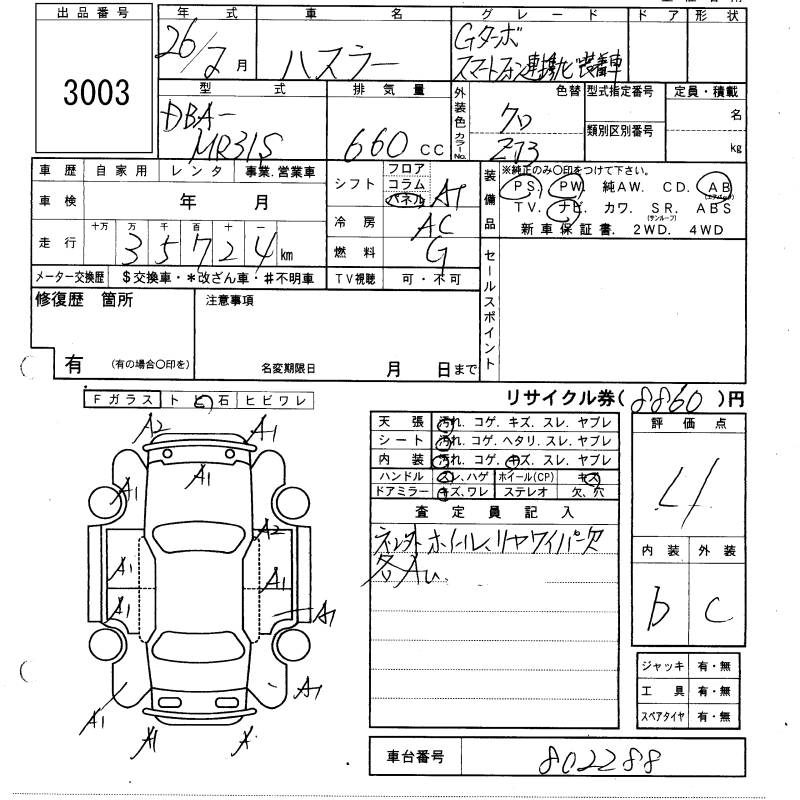 出品番号
3003
年式 車名 グレード ドア 形状
26/2月 ハスラー Gターボ
スマートフォン連携ナビ装着車
型式 排気量 外装色 カラーNo. 色替 型式指定番号 定員・積載
DBA-
MR31S 660 CC クロ 類別区別番号 名
ZJ3 kg
車歴 自家用 レンタ 事業.営業車
車検 年 月
走行 十万 万 千 百 十 一
35724 km
メーター交換歴 $交換車・*改ざん車・#不明車
シフト フロア コラム パネル AT
冷房 AC
燃料 G
TV視聴 可・不可
装備品 ※純正のみ〇印をつけて下さい。
PS. PW. 純AW. CD. AB(エアバッグ)
TV. ナビ. カワ. SR.(サンルーフ) ABS
新車保証書. 2WD. 4WD
セールスポイント
修復歴 箇所 注意事項
有 (有の場合〇印を) 名変期限日 月 日まで
リサイクル券(8860)円
Fガラス トビ石 ヒビワレ
天張 汚れ. コゲ. キズ. スレ. ヤブレ
シート 汚れ. コゲ. ヘタリ. スレ. ヤブレ
内装 汚れ. コゲ. キズ. スレ. ヤブレ
ハンドル スレ、ハゲ ホイール(CP) キズ
ドアミラー キズ、ワレ ステレオ 欠、穴
評価点
4
内装 外装
b c
査定員記入
ホイール、リヤワイパー欠
各AU
A2 A1
A1
A1
A2
A1 A1
A1 A1
A1 A1
A1 A
ジャッキ 有・無
工具 有・無
スペアタイヤ 有・無
車台番号 802288